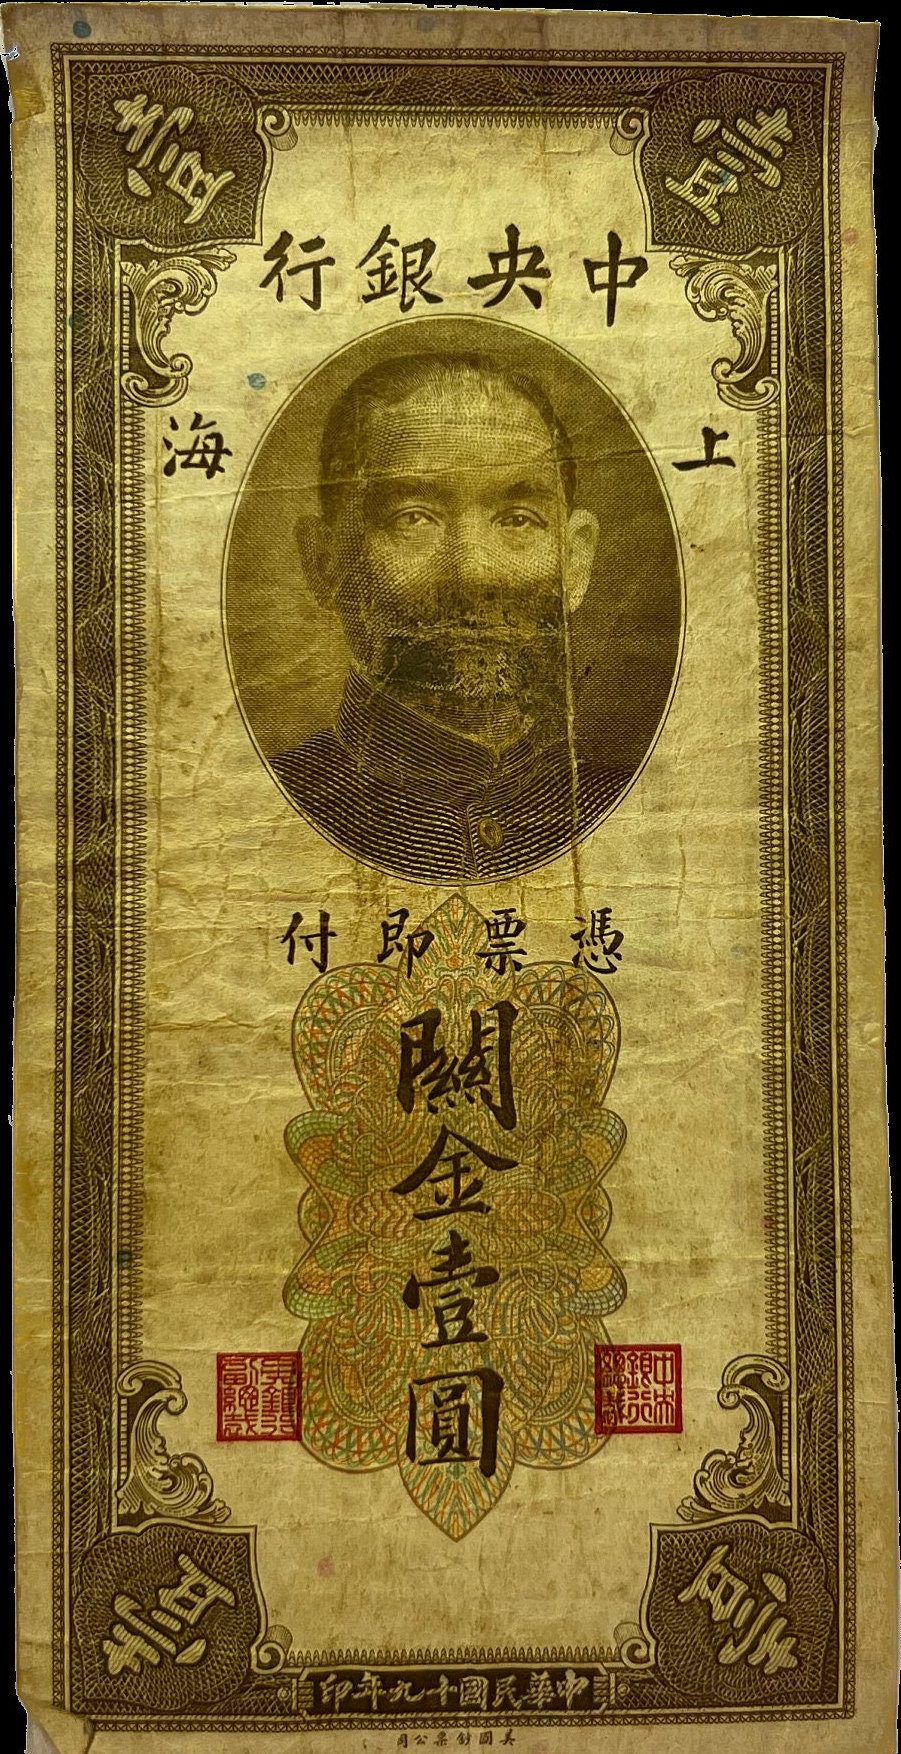 壹 壹
中央銀行
上海
憑票即付
關金壹圓
中央銀行總裁
壹 壹
中華民國十九年印
美國鈔票公司